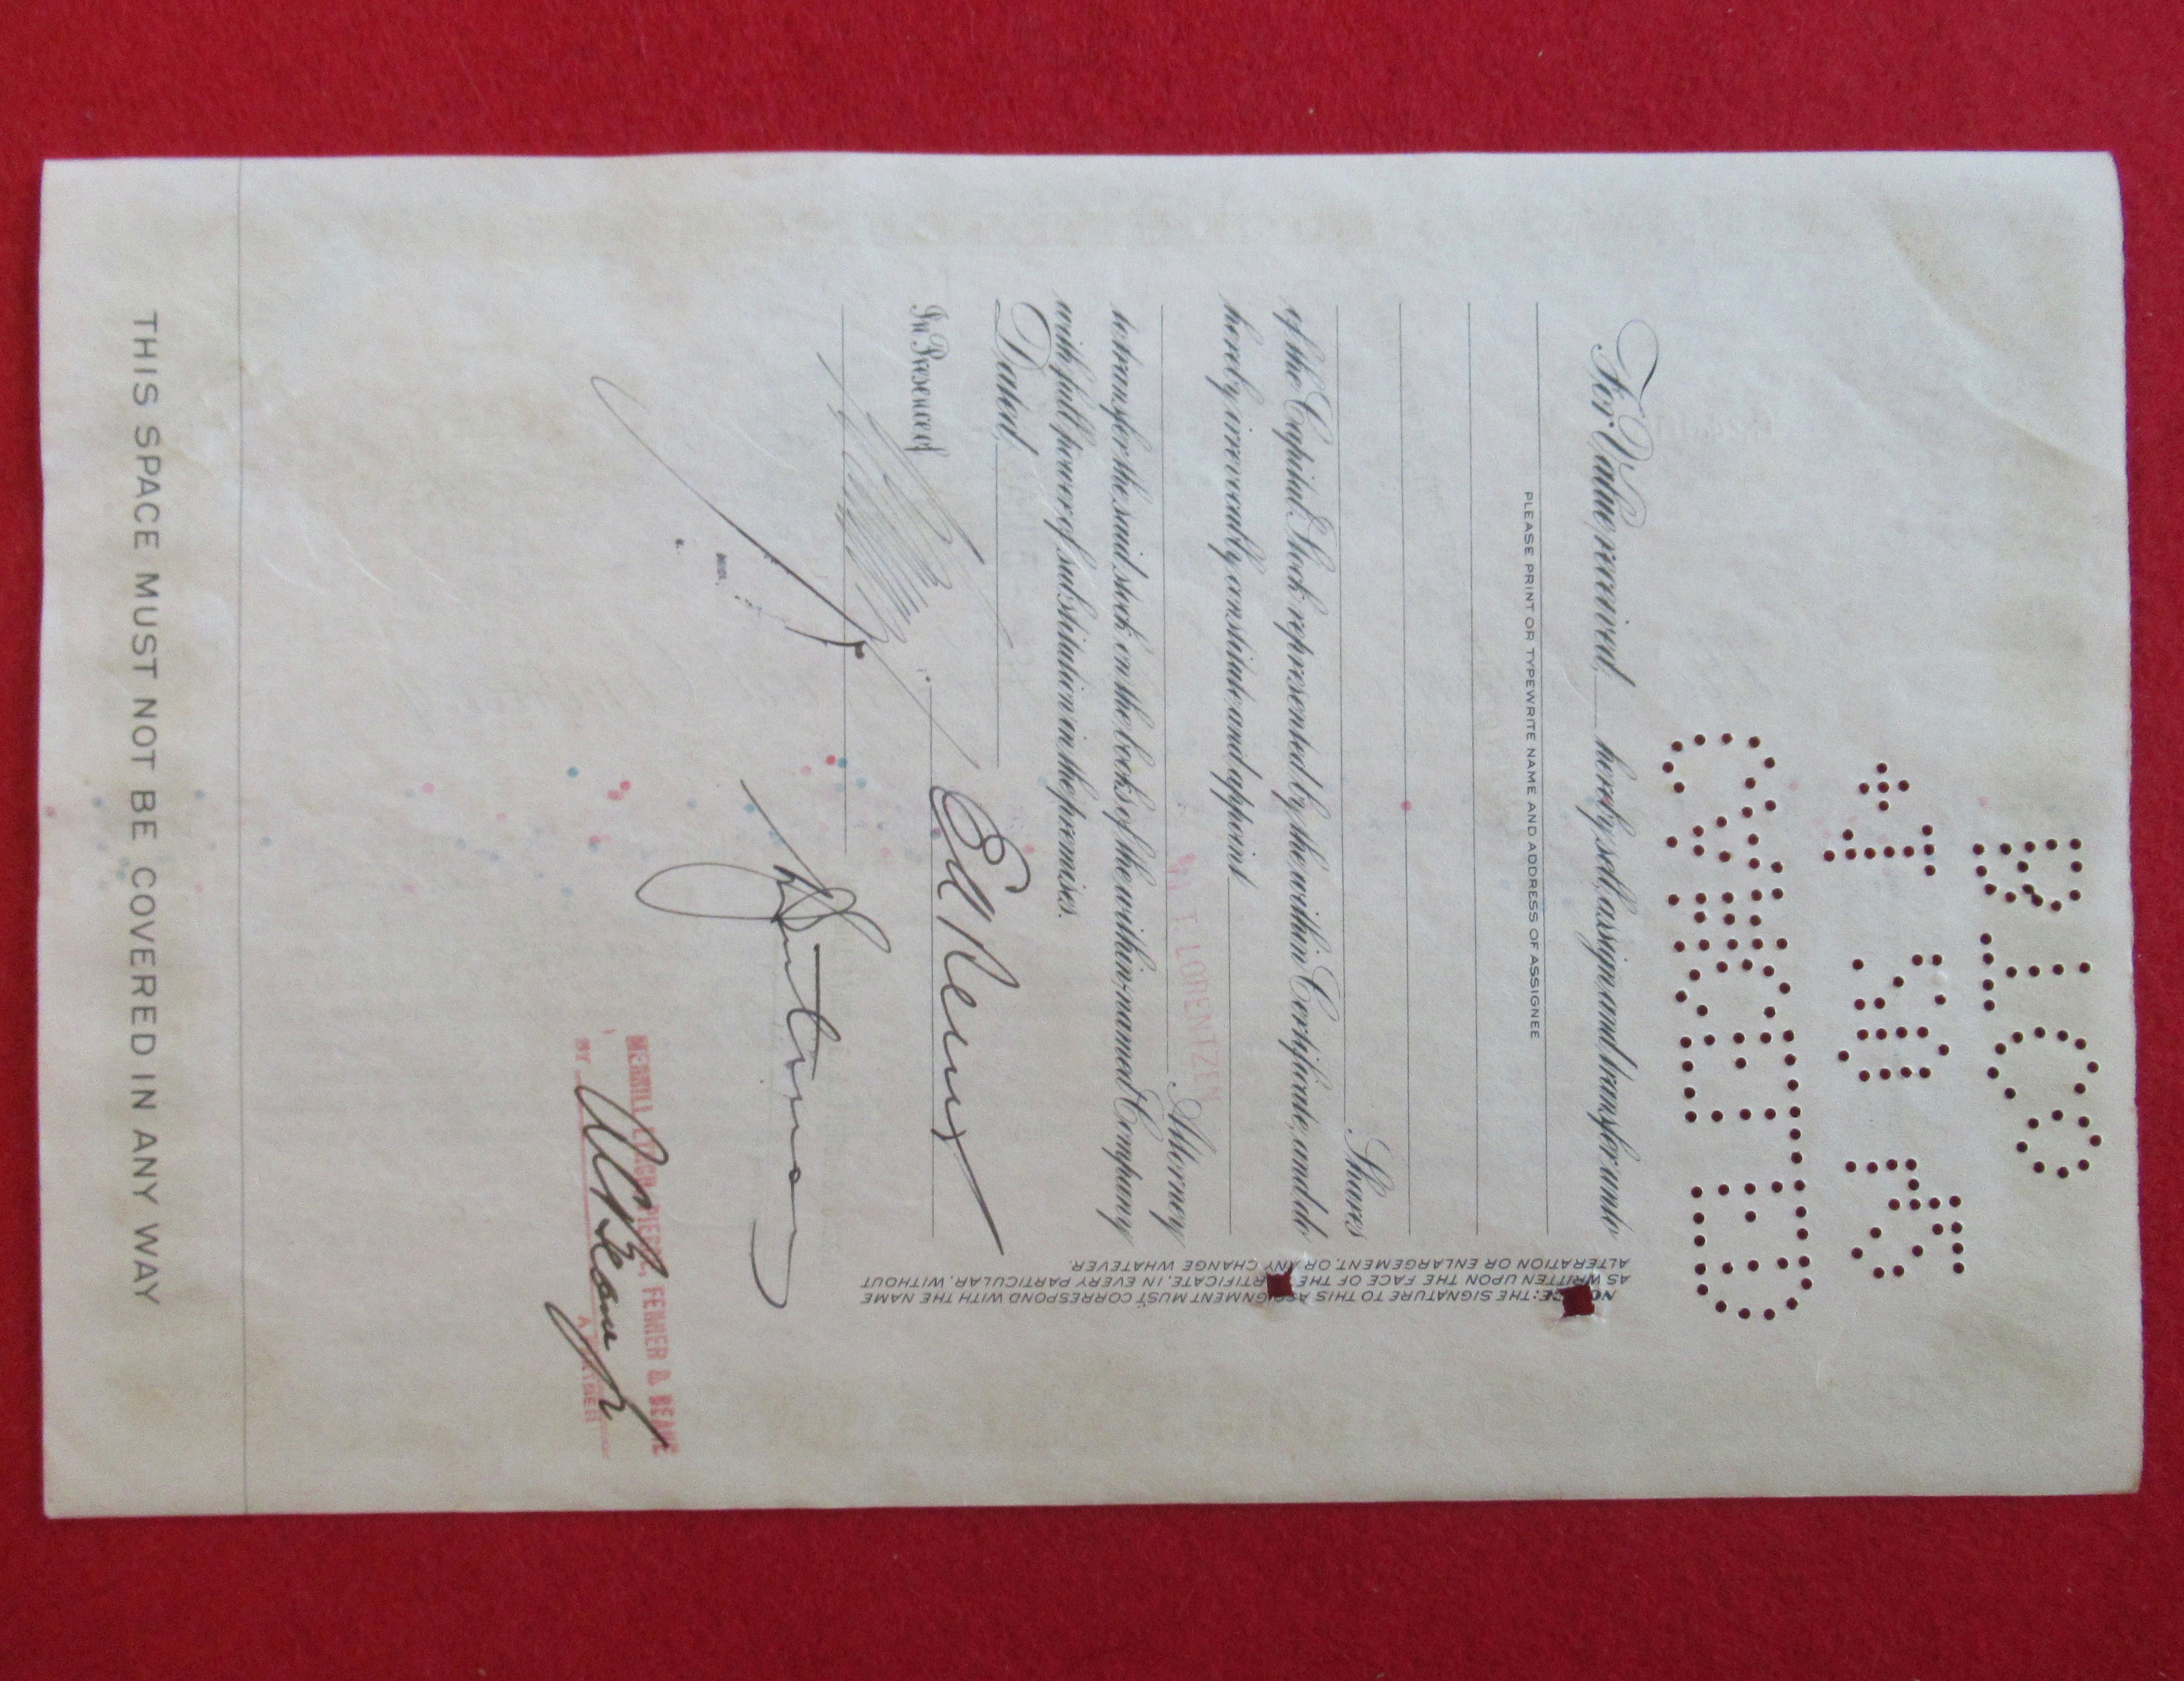 For Value received, hereby sell, assign and transfer unto
PLEASE PRINT OR TYPEWRITE NAME AND ADDRESS OF ASSIGNEE
Shares
of the Capital Stock represented by the within Certificate, and do
hereby irrevocably constitute and appoint
T. LORENTZEN
Attorney
to transfer the said stock on the books of the within-named Company
with full power of substitution in the premises.
Dated,
In Presence of
MERRILL LYNCH, PIERCE, FENNER & BEANE
BY
A PARTNER
NOTICE: THE SIGNATURE TO THIS ASSIGNMENT MUST CORRESPOND WITH THE NAME
AS WRITTEN UPON THE FACE OF THE CERTIFICATE, IN EVERY PARTICULAR, WITHOUT
ALTERATION OR ENLARGEMENT, OR ANY CHANGE WHATEVER.
THIS SPACE MUST NOT BE COVERED IN ANY WAY